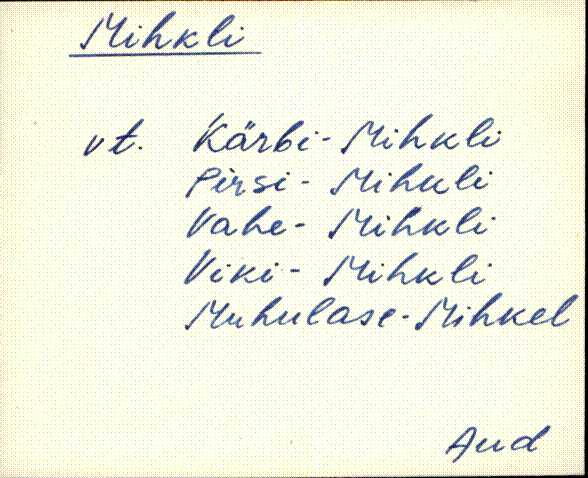 Mihkli
vt. Kärbi-Mihkli
Pirsi-Mihkli
Vahe-Mihkli
Viki-Mihkli
Muhulase-Mihkel
Aud